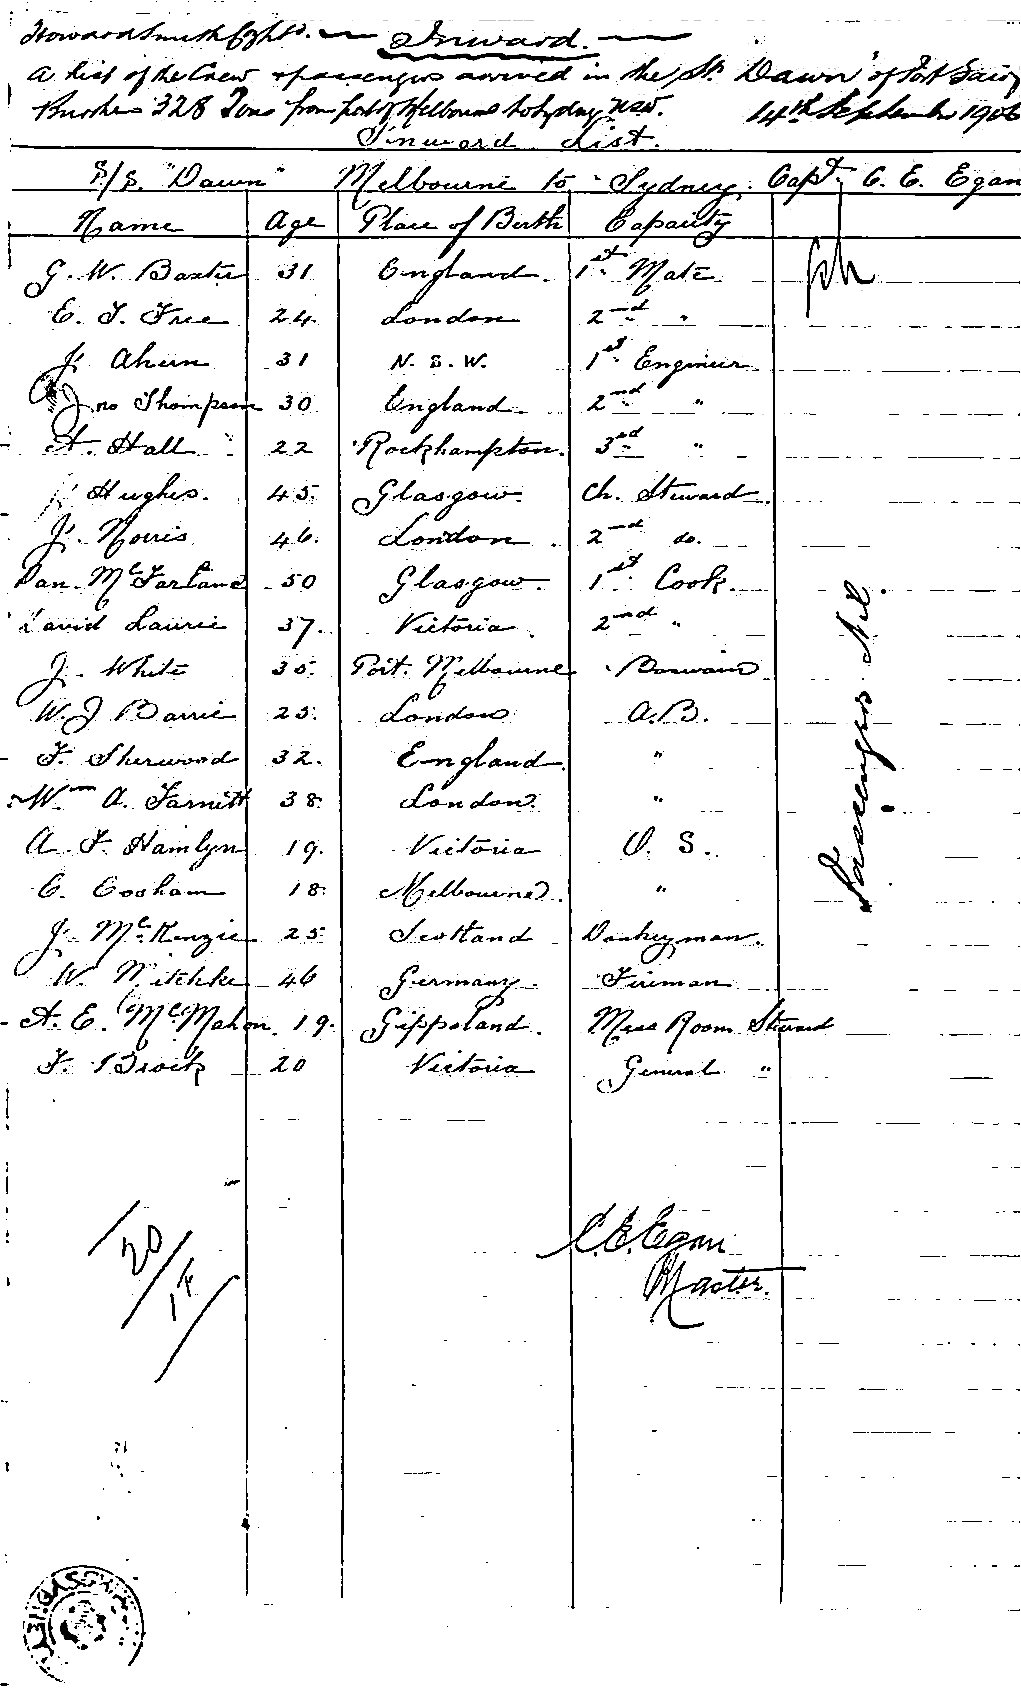 Howard Smith Coy Ltd. — Inward. —
A list of the Crew & passengers arrived in the St. "Dawn" of Port
Burthen 328 Tons from port of Melbourne to Sydney NSW. 14th September 1906
Inward List.
S/S. "Dawn" Melbourne to Sydney. Capt. C. E. Egan
Name Age Place of Birth Capacity
G. W. Baxter 31 England. 1st Mate
E. J. Free 24 London 2nd "
J. Ahern 31 N. S. W. 1st Engineer
Jno Thompson 30 England 2nd "
A. Hall 22 Rockhampton. 3rd "
J Hughes. 45. Glasgow. Ch. Steward
J. Norris 46. London 2nd do.
Dan. McFarland 50 Glasgow. 1st Cook.
David Laurie 37. Victoria 2nd "
J. White 35. Port Melbourne Boswain
W. J Barrie 25. London A.B.
F. Sherwood 32. England "
Wm A. 38 London. "
A. F. Hamlyn 19. Victoria O. S.
C. Cosham 18. Melbourne. "
J. McKenzie 25 Scotland Donkeyman.
W. Nitchke 46 Germany. Fireman
A. E. McMahon 19. Gippsland. Mess Room Steward
F. Brock 20 Victoria General "
Passengers Nil.
20/
C. E. Egan
Master.